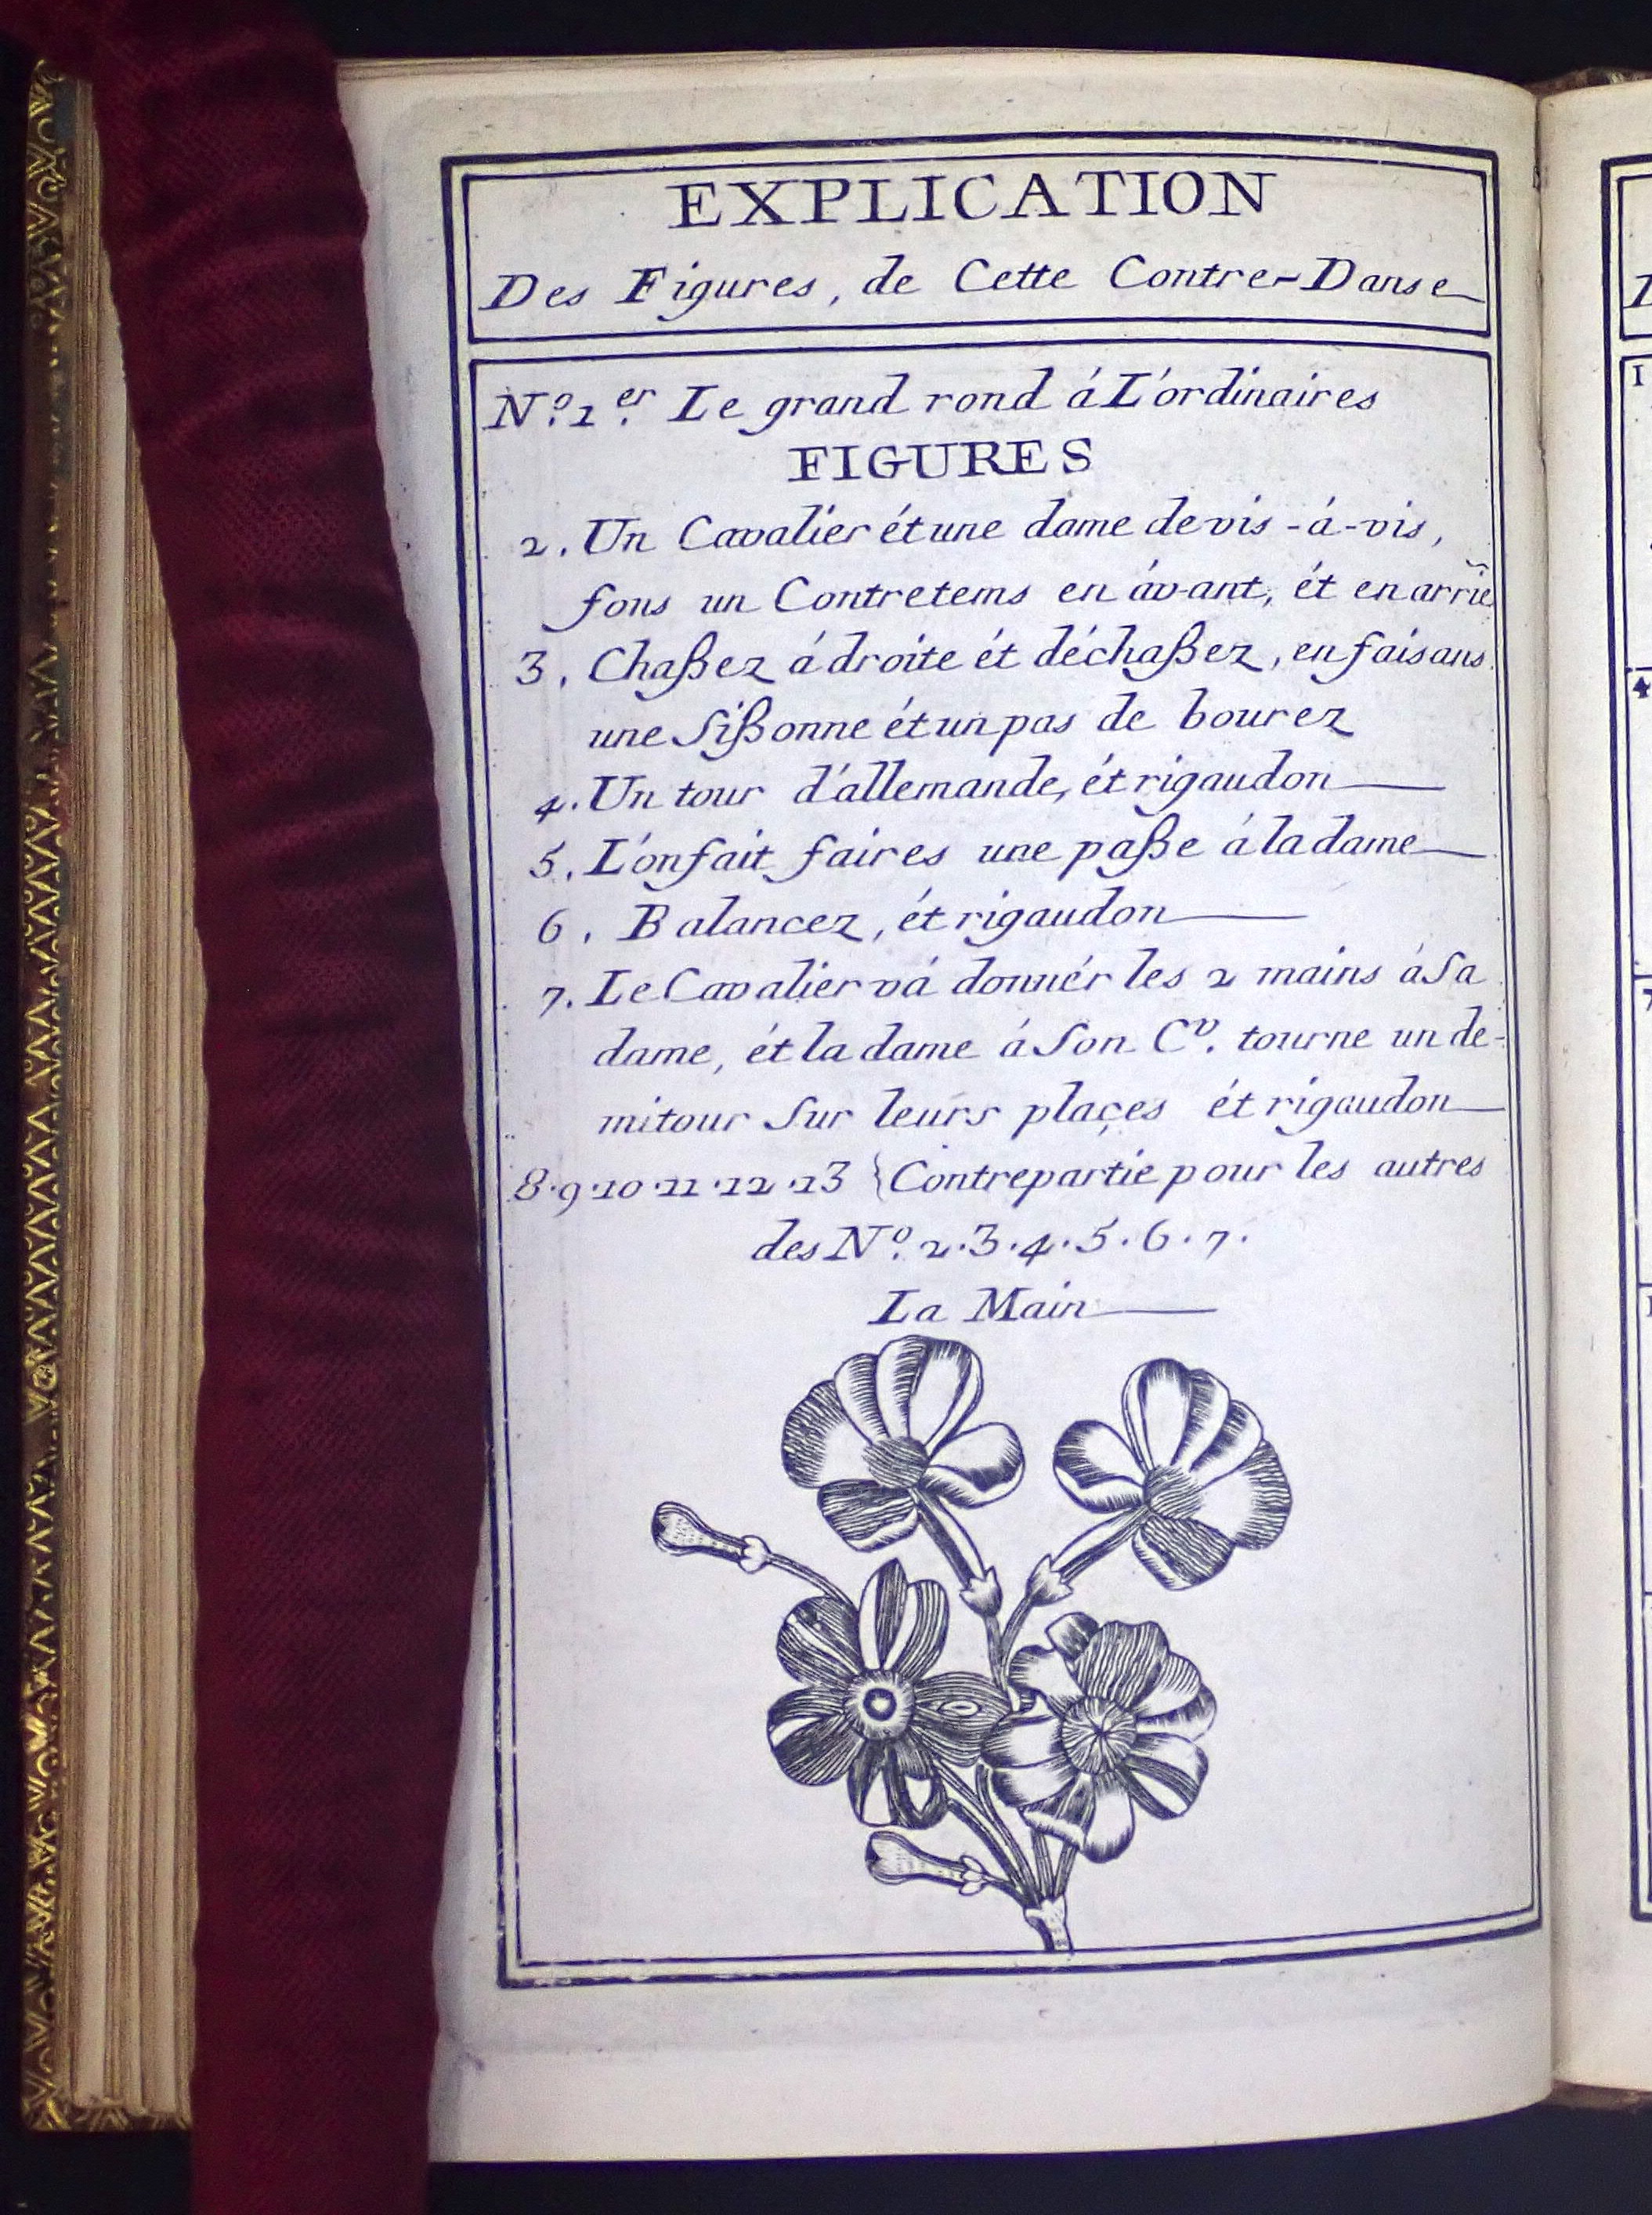 EXPLICATION
Des Figures, de Cette Contre-Danse
N.º 1.er Le grand rond á L'ordinaires
FIGURES
2. Un Cavalier ét une dame de vis-á-vis,
fons un Contretems en ávant, ét en arrie
3. Chaßez á droite ét déchaßez, en faisans
une Sißonne ét un pas de bourez
4. Un tour d'allemande, ét rigaudon
5. L'on fait faires une paße á la dame
6. Balancez, ét rigaudon
7. Le Cavalier vá donnér les 2 mains á Sa
dame, ét la dame á Son C.v tourne un de-
mitour Sur leurs plaçes ét rigaudon
8·9·10·11·12·13 } Contrepartie pour les autres
des N.º 2·3·4·5·6·7·
La Main